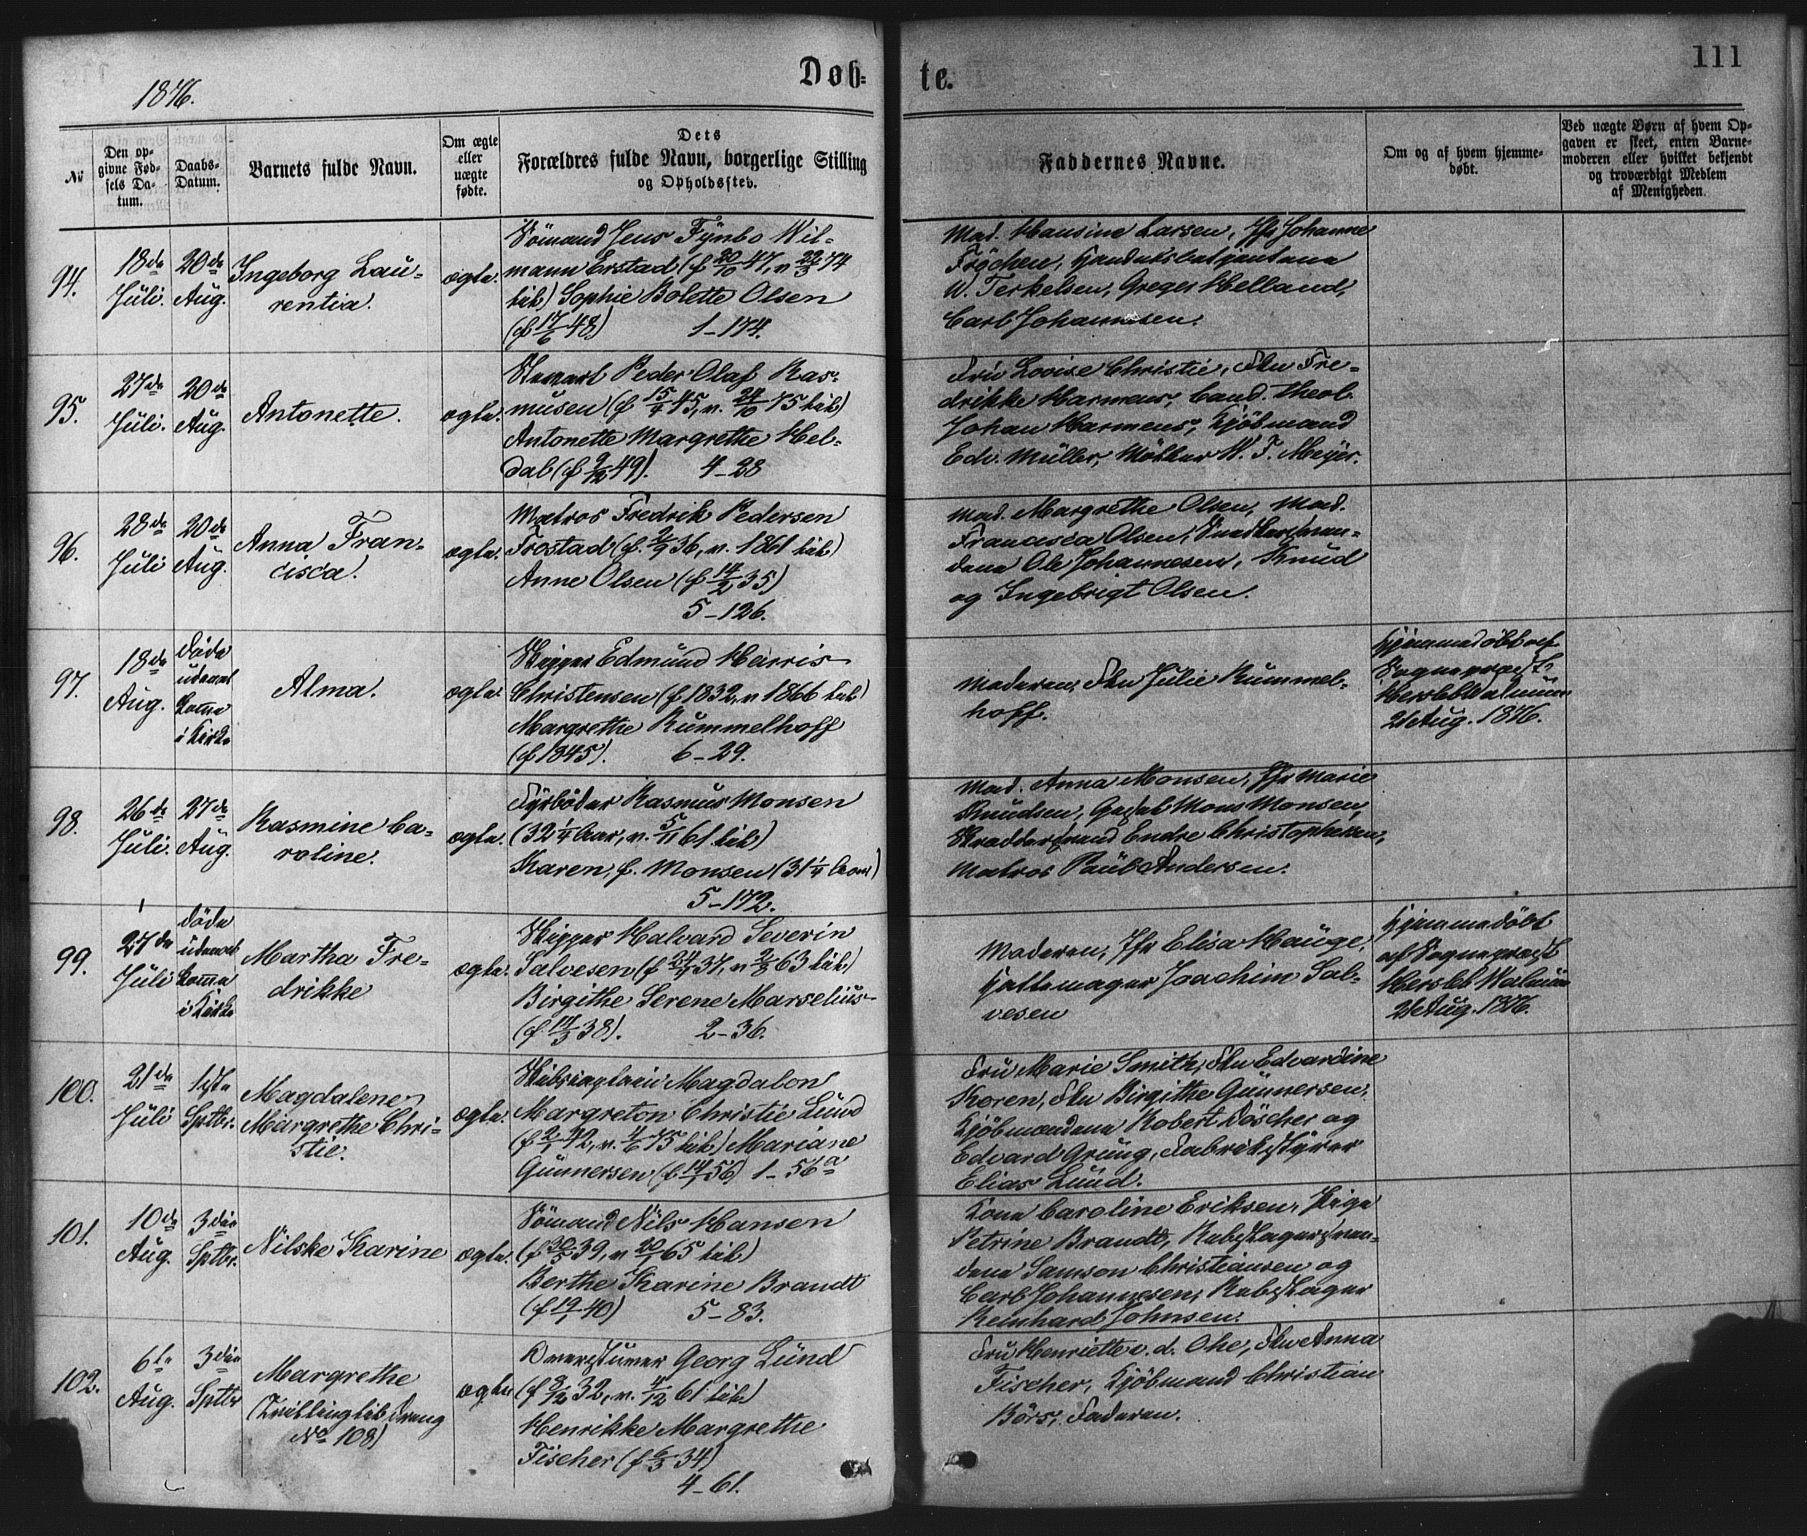 1876.
Døb-
te.
111
No
Den op-
givne Fød-
sels Da-
tum.
Daabs-
Datum.
Barnets fulde Navn.
Om ægte
eller
uægte
fødte.
Dets
Forældres fulde Navn, borgerlige Stilling
og Opholdssted.
Faddernes Navne.
Om og af hvem hjemme-
døbt.
Ved uægte Børn af hvem Op-
gaven er skeet, enten Barne-
moderen eller hvilket bekjendt
og troværdigt Medlem
af Menigheden.
94.
18de
Juli
20de
Aug.
Ingeborg Lau-
rentia.
ægte.
Sömand Jens Fynbo Wil-
mann Erstad (f 20/10 47, v 22/3 74
til) Sophie Bolette Olsen
(f 17/6 48) 1-174.
Mad. Hansine Larsen, Jfr Johanne
W. Terkelsen, Greger Helland,
Carl Johannesen.
95.
27de
Juli.
20de
Aug.
Antonette.
ægte.
Peder Olaf Ras-
musen (f 15/4 45, v. 24/10 75 til)
Antonette Margrethe Hel-
dal (f 9/12 49). 4-28
Fru Lovise Christie, Fru Fre-
drikke Harmens, Cand. theol.
Johan Harmens, Kjöbmand
Edv. Müller, Mökler W. T. Meyer.
96.
28de
Juli
20de
Aug.
Anna Fran-
cisca.
ægte.
Matros Fredrik Pedersen
Frostad (f. 2/9 36, v. 1861 til)
Anne Olsen (f 14/2 35)
5-126.
Mad. Margrethe Olsen, Mad.
Francisca Olsen, Snedkersven-
dene Ole Johannesen, Knud
og Ingebrigt Olsen.
97.
18de
Aug.
døde
uden at
komme
i Kirke
Alma.
ægte.
Skipper Edmund Harris
Christensen (f 1832, v 1866 til)
Margrethe Rummelhoff
(f 1845). 6-29.
Moderen, Fru Julie Rummel-
hoff.
Hjemmedøbt af
Sognepræst
Hersleb Walnum
21 Aug. 1876.
98.
26de
Juli.
27de
Aug.
Rasmine Ca-
roline.
ægte.
Fyrböder Rasmus Monsen
(32 1/4 Aar, v. 5/11 61 til)
Karen, f. Monsen (31 1/4 Aar)
5-172.
Mad. Anna Monsen, Jfr Marie
Knudsen, Gesel Mons Monsen,
Skræddersvend Endre Christophersen,
Matros Paul Andersen.
99.
27de
Juli
døde
uden at
komme
i Kirke
Martha Fre-
drikke
ægte.
Skipper Halvard Severin
Salvesen (f 24/7 37, v 2/3 63 til)
Birgithe Serene Marselius
(f. 17/3 38). 2-36.
Moderen, Jfr Elisa Hauge,
Hattemager Joachim Sal-
vesen
Hjemmedöbt
af Sognepræst
Hersleb Walnum
21 Aug. 1876.
100.
21de
Juli
1ste
Sptbr.
Magdalene
Margrethe Chri-
stie.
ægte.
Magdalon
Margreton Christie Lund
(f 2/1 42, v. 4/6 75 til) Mariane
Gunnersen (f. 14/7 56) 1-56a
Fru Marie Smith, Fru Edvardine
Koren, Fru Birgithe Gunnersen,
Kjöbmændene Robert Döscher og
Edvard Grung, Fabrikbestyrer
Elias Lund.
101.
10de
Aug.
3die
Sptbr.
Nilske Karine
ægte.
Sömand Nils Hansen
(f 30/5 39, v 20/1 65 til)
Berthe Karine Brandt
(f 19/1 40) 5-83.
Kone Caroline Eriksen, Pige
Petrine Brandt, Rebslagersven-
dene Samson Christiansen og
Carl Johannesen, Rebslager
Reinhard Johnsen.
102.
6te
Aug.
3die
Sptbr
Margrethe
(Tvilling til Dreng
No 108)
ægte
Georg Lund
(f 3/12 32, v. 4/12 61 til)
Henrikke Margrethe
Fischer (f 6/3 34)
4-61.
Fru Henriette v. d. Ohe, Fru Anna
Fischer, Kjöbmand Christian
Börs, Faderen.